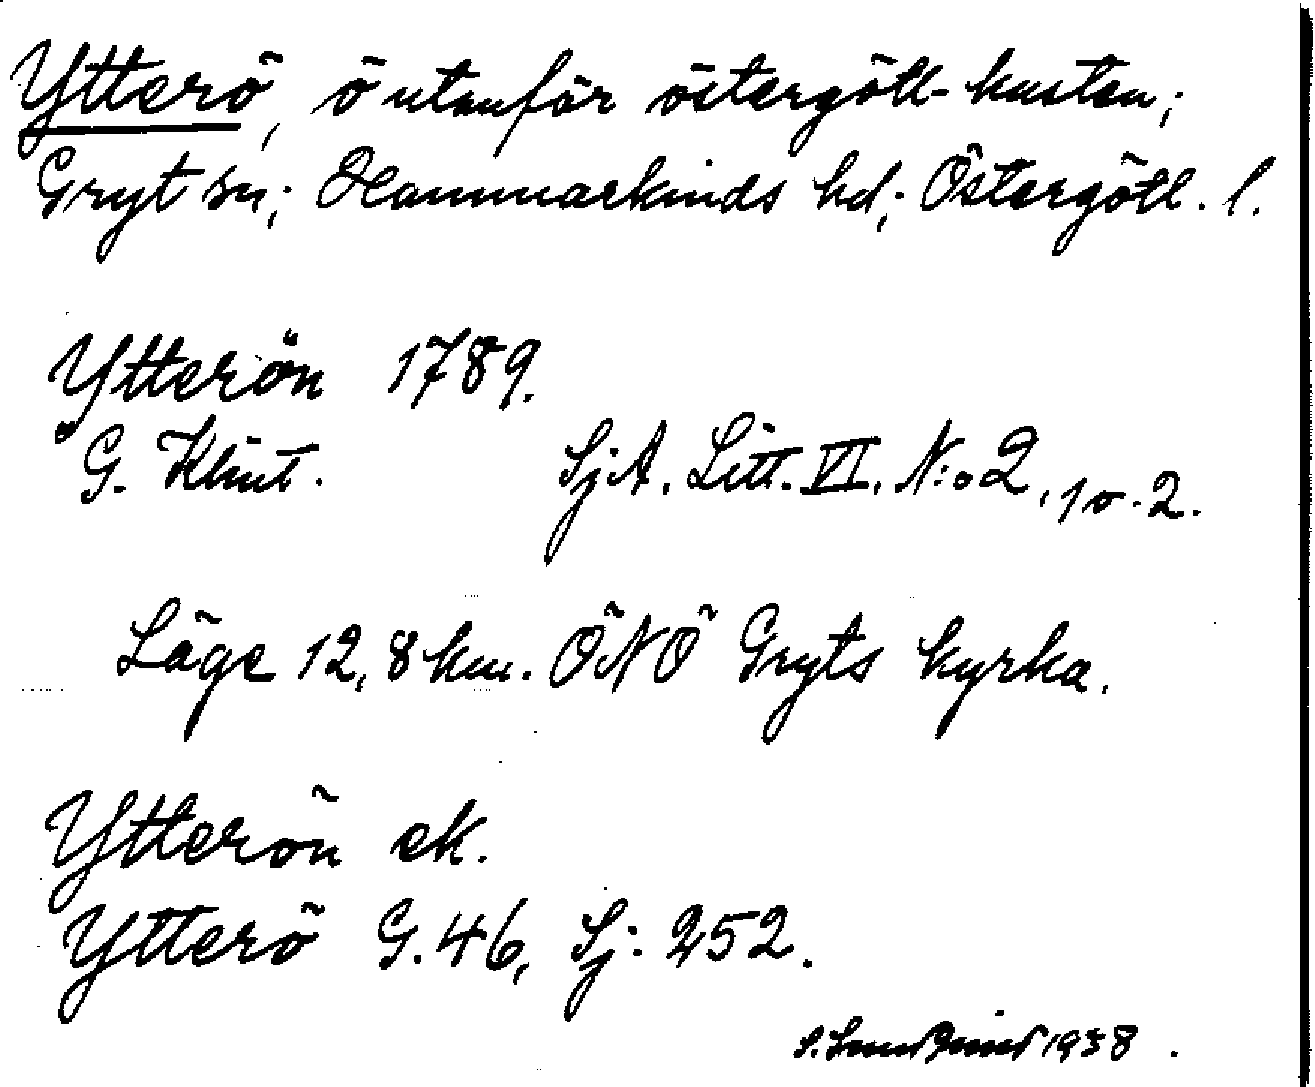 Ytterö, ö utanför östergötl-kusten;
Gryt sn; Hammarkinds hd; Östergötl. l.
Ytterön 1789.
G. Klint. SjA. Litt. VI. N:o 2, 1 o. 2.
Läge 12,8 km. ÖNÖ Gryts kyrka.
Ytterön ek.
Ytterö G. 46, Sj: 252.
S. 1938.